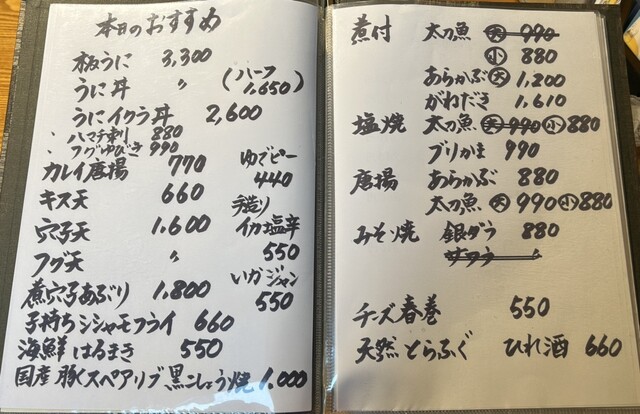 本日のおすすめ
板うに 3,300
うに丼 〃 (ハーフ 1,650)
うにイクラ丼 2,600
、ハマチ刺 880
、フグゆびき 990
カレイ唐揚 770
キス天 660
穴子天 1,600
フグ天 〃
煮穴子あぶり 1,800
子持ちシシャモフライ 660
海鮮はるまき 550
国産豚スペアリブ黒こしょう焼 1,000
ゆでピー
440
手造り
イカ塩辛
550
いかジャン
550
煮付 太刀魚 大 990
小 880
あらかぶ 大 1,200
がねだき 1,610
塩焼 太刀魚 大 990 小 880
ブリかま 990
唐揚 あらかぶ 880
太刀魚 大 990 小 880
みそ焼 銀ダラ 880
〃
チーズ春巻 550
天然とらふぐ ひれ酒 660